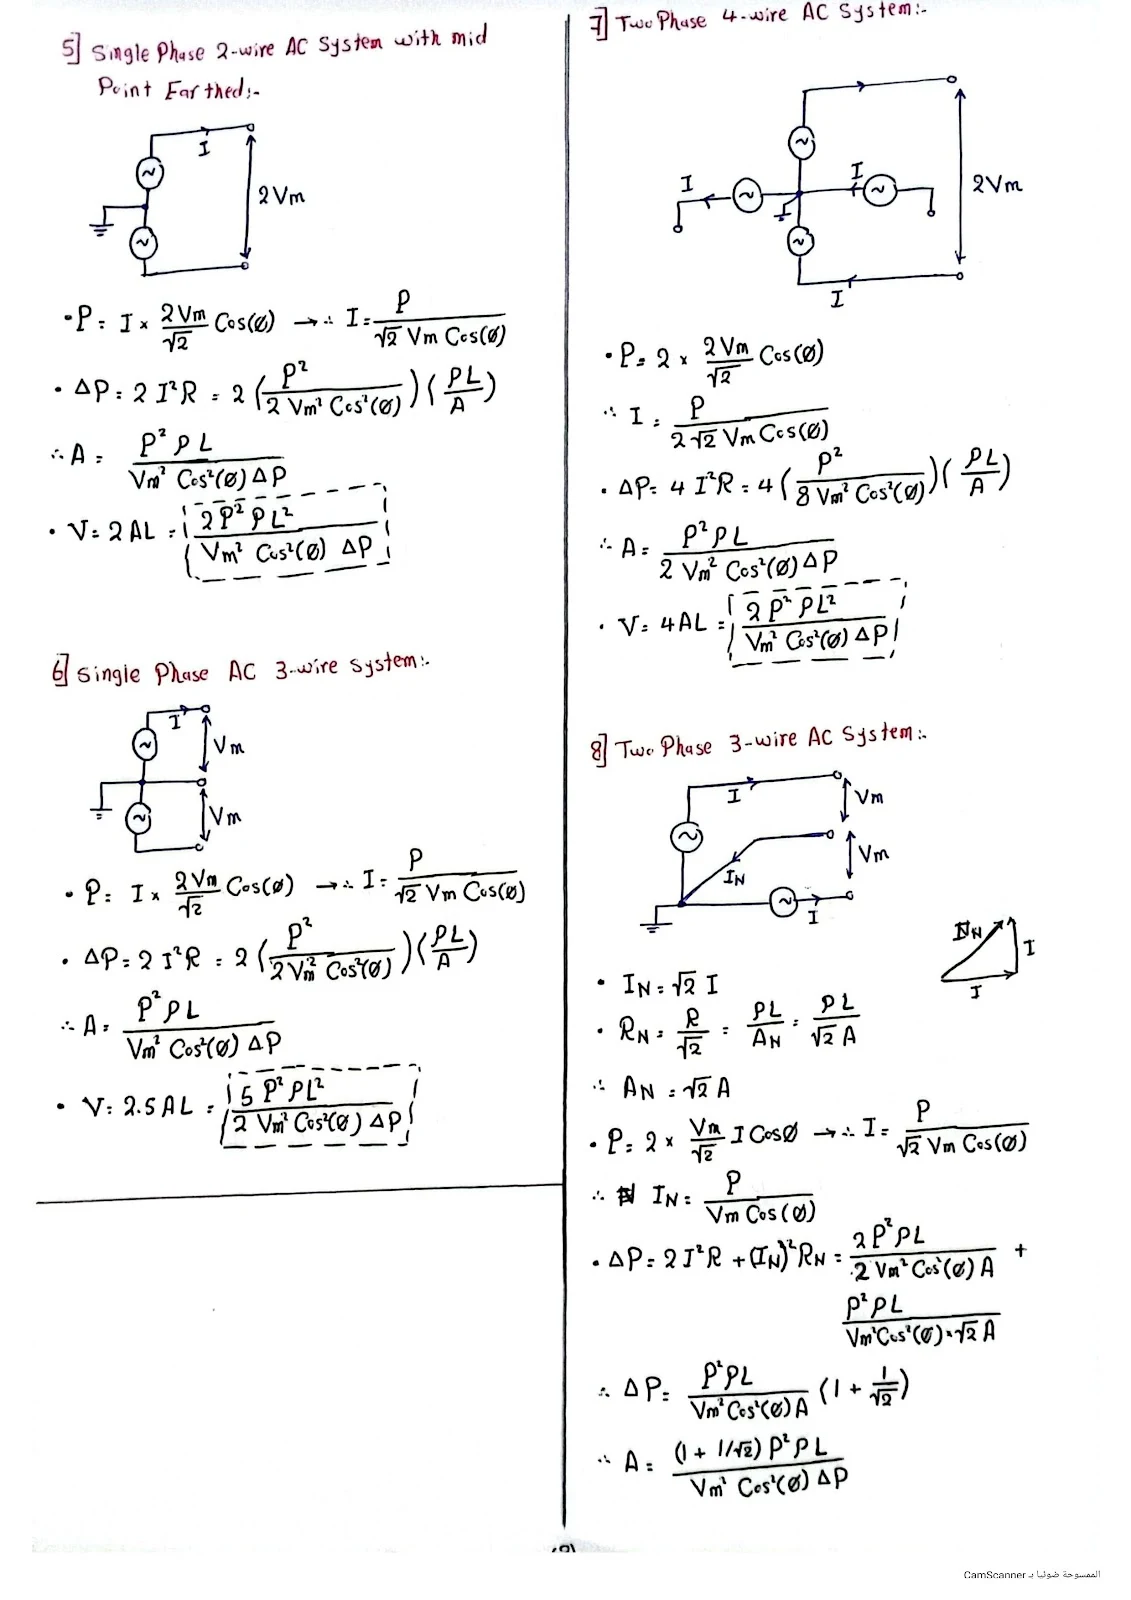 5] Single Phase 2-wire AC System with mid
Point Earthed:-
I
2Vm
• P = I × 2Vm/√2 Cos(Ø) → ∴ I = P/(√2 Vm Cos(Ø))
• ΔP = 2 I²R = 2 (P²/(2 Vm² Cos²(Ø))) (ρL/A)
∴ A = P² ρL/(Vm² Cos²(Ø) ΔP)
• V = 2AL = 2P² ρL²/(Vm² Cos²(Ø) ΔP)
6] Single Phase AC 3-wire System:-
I
Vm
Vm
• P = I × 2Vm/√2 Cos(Ø) → ∴ I = P/(√2 Vm Cos(Ø))
• ΔP = 2 I²R = 2 (P²/(2 Vm² Cos²(Ø))) (ρL/A)
∴ A = P² ρL/(Vm² Cos²(Ø) ΔP)
• V = 2.5AL = 5 P² ρL²/(2 Vm² Cos²(Ø) ΔP)
7] Two Phase 4-wire AC System:-
I
I
2Vm
I
• P = 2 × 2Vm/√2 Cos(Ø)
∴ I = P/(2√2 Vm Cos(Ø))
• ΔP = 4 I²R = 4 (P²/(8 Vm² Cos²(Ø))) (ρL/A)
∴ A = P² ρL/(2 Vm² Cos²(Ø) ΔP)
• V = 4AL = 2 P² ρL²/(Vm² Cos²(Ø) ΔP)
8] Two Phase 3-wire AC System:-
I
Vm
Vm
IN
I
I
I
• IN = √2 I
• RN = R/√2 = ρL/AN = ρL/(√2 A)
∴ AN = √2 A
• P = 2 × Vm/√2 I CosØ → ∴ I = P/(√2 Vm Cos(Ø))
∴ IN = P/(Vm Cos(Ø))
• ΔP = 2I²R + (IN)² RN = 2P² ρL/(2 Vm² Cos²(Ø) A) +
P² ρL/(Vm² Cos²(Ø) × √2 A)
∴ ΔP = P² ρL/(Vm² Cos²(Ø) A) (1 + 1/√2)
∴ A = (1 + 1/√2) P² ρL/(Vm² Cos²(Ø) ΔP)
الممسوحة ضوئيا بـ CamScanner